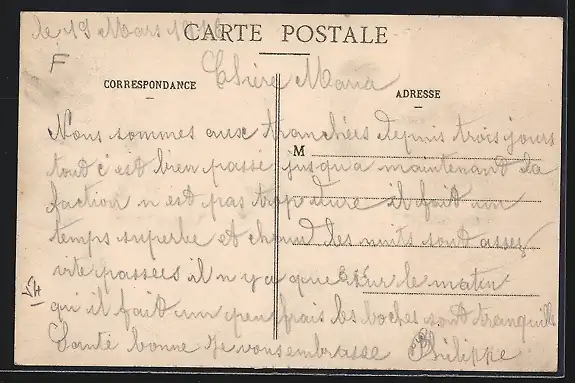 le 19 Mars 1916
CARTE POSTALE
F
Chère Maria
CORRESPONDANCE
ADRESSE
Nous sommes aux tranchées depuis trois jours
M
tout c'est bien passé jusqu'a maintenant la
faction n est pas trop dure il fait un
temps superbe et chaud les nuits sont assez
vite passees il n y a que sur le matin
qu il fait un peu frais les boches sont tranquille
Santé bonne Je vous embrasse Philippe